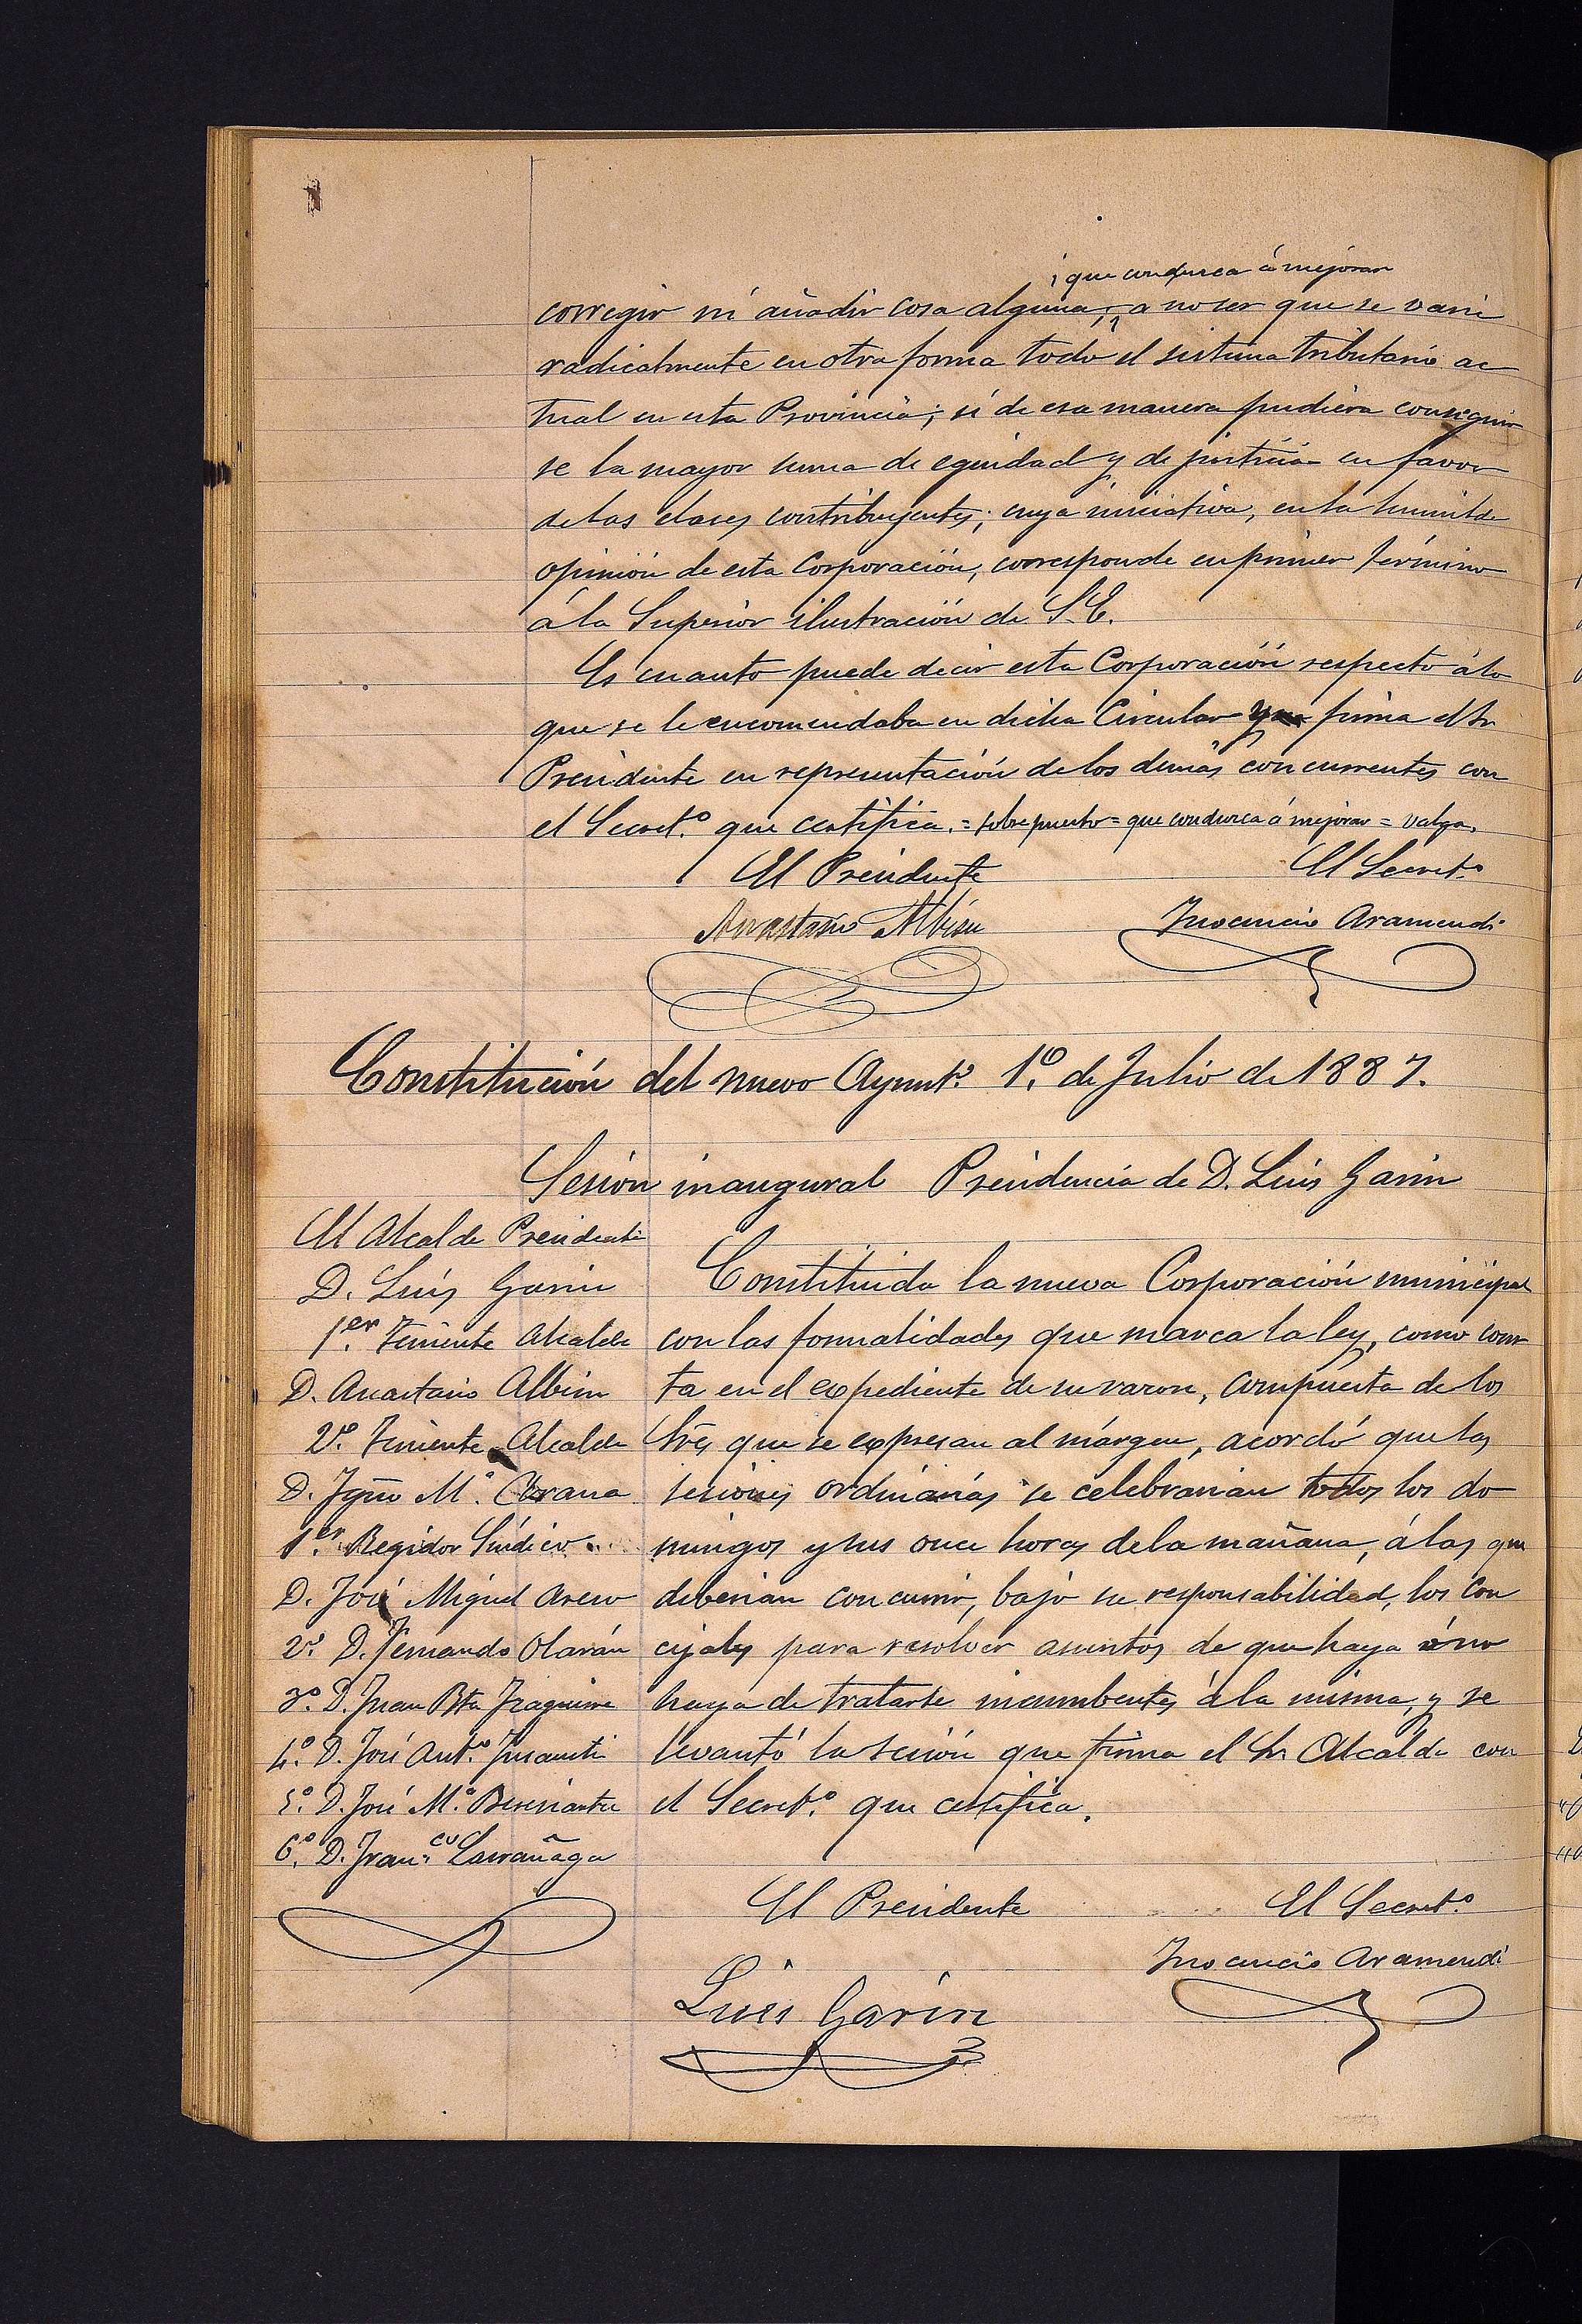 que conduzca á mejorar
corregir ni añadir cosa alguna, a no ser que se varie
radicalmente en otra forma todo el sistema tributario ac
tual en esta Provincia; si de esa manera pudiera conseguir
se la mayor suma de equidad y de justicia en favor
de las clases contribuyentes; cuya iniciativa, en la humilde
opinión de esta Corporación, corresponde en primer término
á la Superior ilustración de S.E.
Es cuanto puede decir esta Corporación respecto á lo
que se le encomendaba en dicha Circular y firma el Sr
Presidente en representación de los demás concurrentes con
el Secret.º que certifica. = sobrepuesto = que conduzca á mejorar = valga.
El Presidente
El Secret.º
Anastasio Albisu
Inocencio Aramendi
Constitución del nuevo Ayunt.º 1.º de Julio de 1887.
Sesión inaugural Presidencia de D. Luis Garin
El Alcalde Presidente
D. Luis Garin
1.er Teniente Alcalde
D. Anastasio Albisu
2.º Teniente Alcalde
D. Ign.º M.ª Arana
1.er Regidor Síndico
D. José Miguel
2.º D. Fernando Olarán
3.º D. Juan Bta Izaguirre
4.º D. José Ant.º Insausti
5.º D. José M.ª
6.º D. Fran.co Larrañaga
Constituida la nueva Corporación municipal
con las formalidades que marca la ley, como cons
ta en el expediente de su razon, compuesta de los
Sres que se expresan al márgen, acordó que las
sesiones ordinarias se celebrarian todos los do
mingos y sus once horas de la mañana, á las que
deberian concurrir, bajo su responsabilidad, los con
cejales para resolver asuntos de que haya ó no
haya de tratarse incumbentes á la misma, y se
levantó la sesión que firma el Sr Alcalde con
el Secret.º que certifica.
El Presidente
El Secret.º
Luis Garin
Inocencio Aramendi